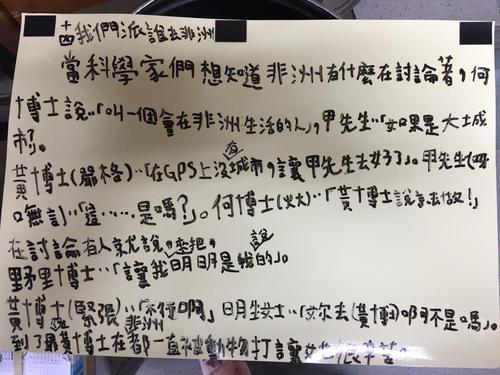 十四我們派誰去非洲
當科學家們想知道非洲有什麼在討論著，何
博士說：「叫一個會在非洲生活的人」，甲先生：「如果是大城
市。
黃博士(嚴格)：「在GPS上沒有城市，讓甲先生去好了」。甲先生(
口無言)：「這……是嗎？」。何博士(火大)：「黃博士說去做！」
在討論有人就說
野里博士：「讓我明明是我說的」。
黃博士(緊張)：「不行啊」明女士：「妳去(黃博士)啊不是嗎」。
到了非洲黃博士在都一直被動物打讓女也很辛苦。